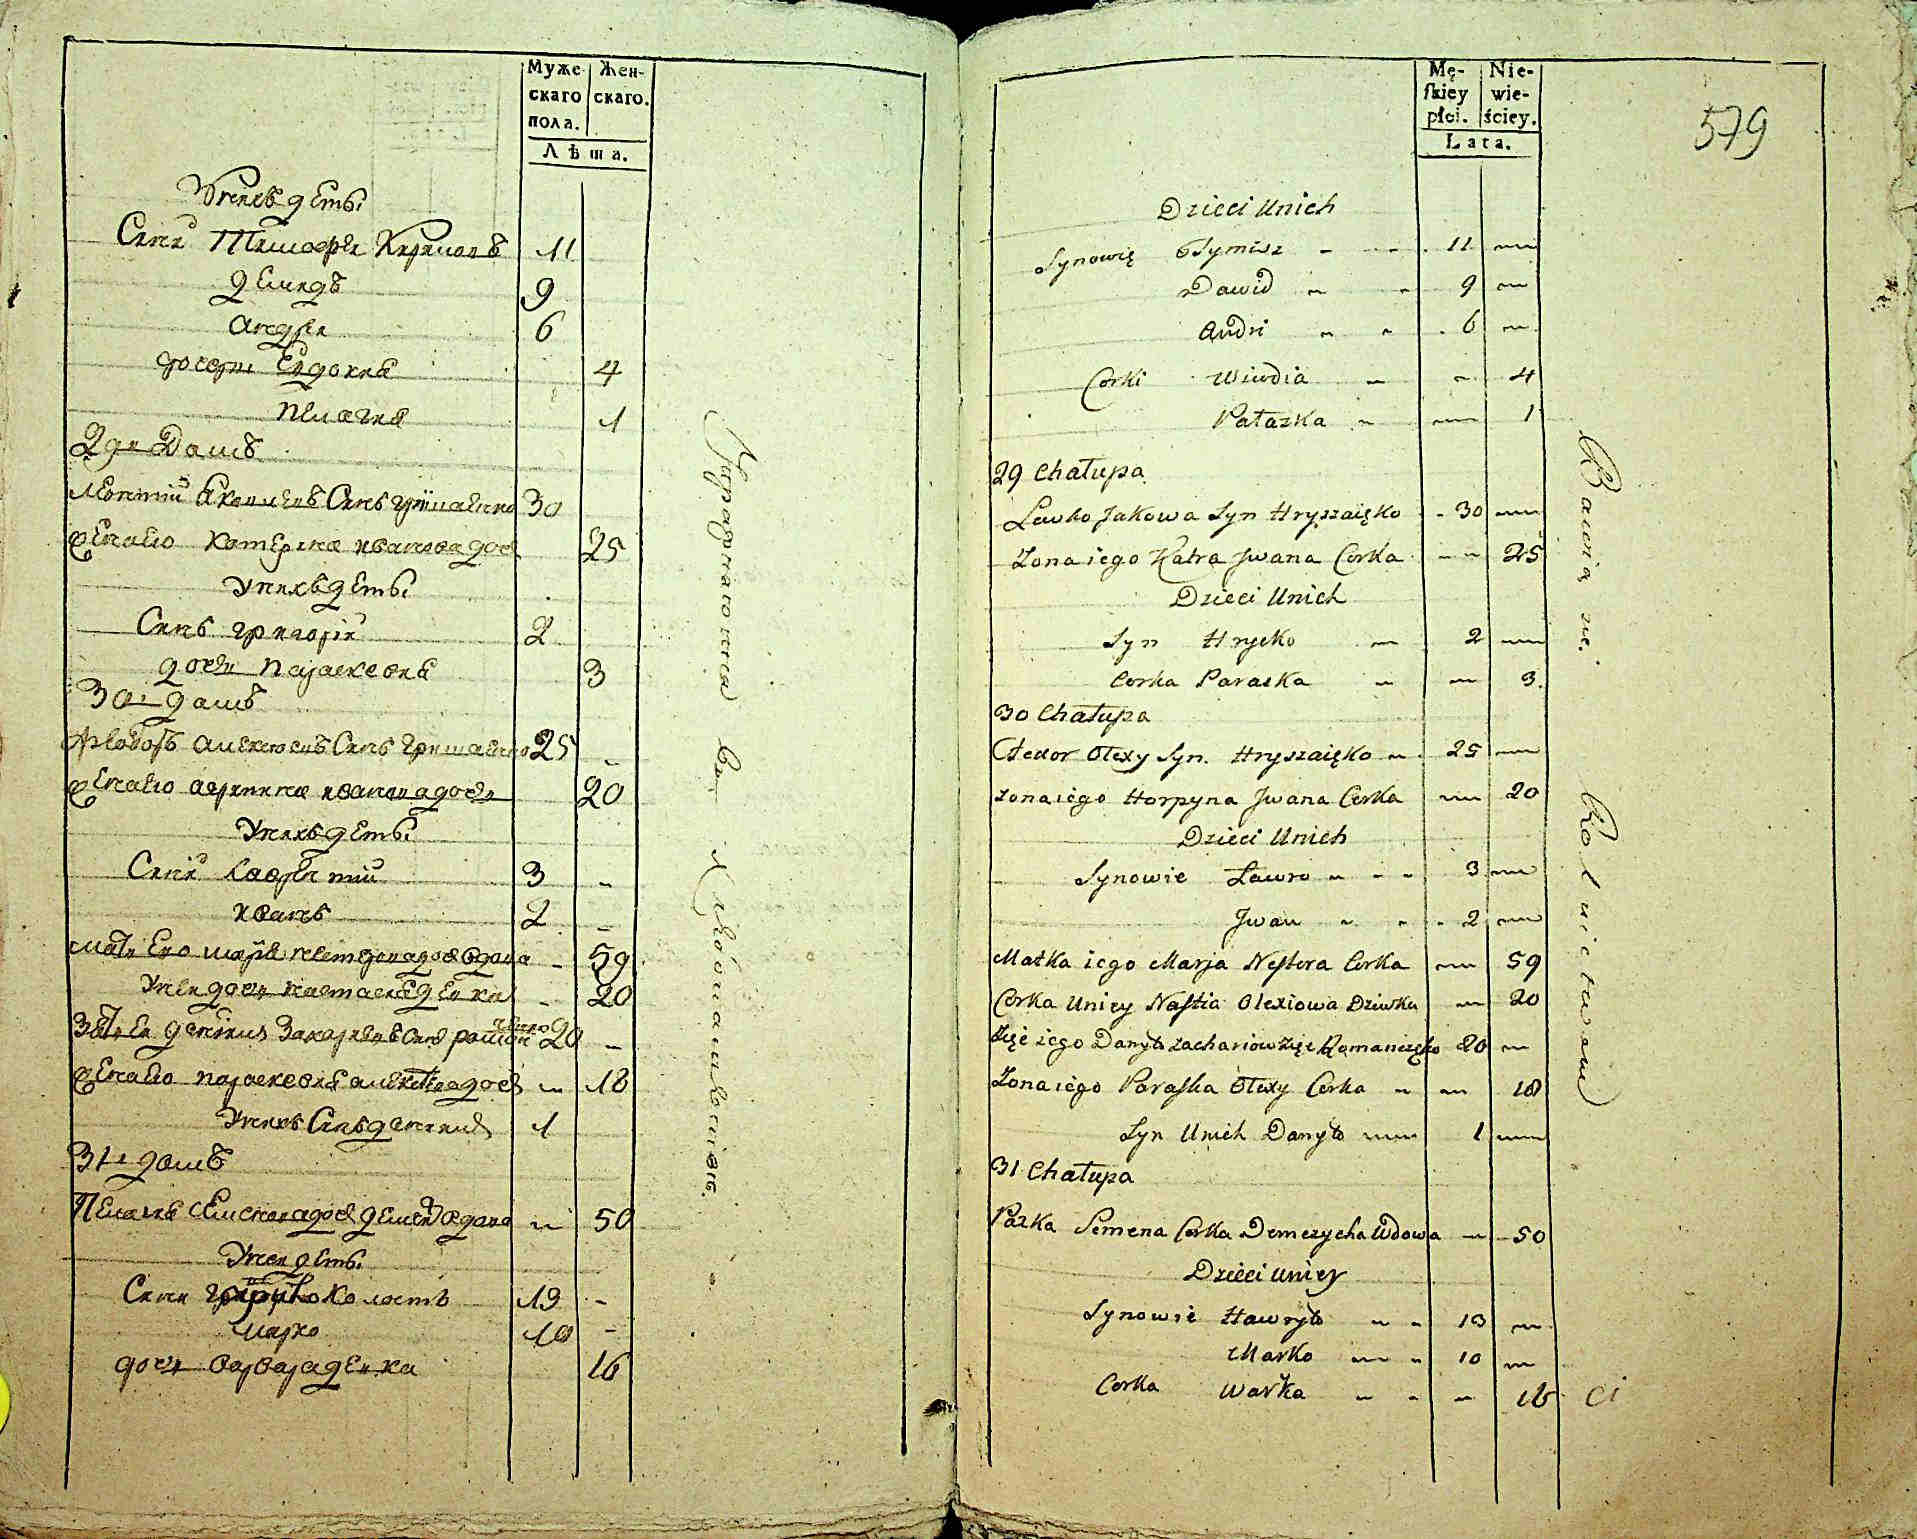 Муже-
скаго
пола.
Жен-
скаго.
Лѣта.
Унихъ детѣ
Сини Тимофѣи 11
Демидъ 9
Андреи 6
дочери Евдокия 4
Пелагия 1
29й Домъ
Леонтий Яковлевъ Синъ Гришаенко 30
Жена его Катерина Иванова дочь 25
Унихъ детѣ
Синъ Григорий 2
дочь Параскевия 3
30й домъ
Ѳеодоръ Алексеевъ Синъ Гришаенко 25
Жена его Агрипина Иванова дочь 20
Унихъ детѣ
Сини Лаврентий 3
Иванъ 2
Мать Его Мария Нестерова дочь вдова 59
Унеи дочь Настасия девка 20
Зять Ея Данило Захариевъ Синъ Романченко 20
Жена его Параскевия Алексеева дочь 18
Унихъ Синъ Данило 1
31й домъ
Пелагия Семенова дочь вдова 50
Унеи детѣ
Сини Гаврило холостъ 13
Марко 10
дочь Варвара девка 16
Męskiey
płci.
Niewieściey.
Lata.
579
Dzieci Unich
Synowię Tymisz 11
Dawid 9
Andri 6
Corki Wiwdia 4
Pałazka 1
29 Chałupa
Lewko Jakowa Syn Hryszaięko 30
Zona iego Katra Jwana Corka 25
Dzieci Unich
Syn Hrycko 2
Corka Paraska 3.
30 Chałupa
Fedor Olexy Syn Hryszaięko 25
zona iego Horpyna Jwana Corka 20
Dzieci Unich
Synowie Ławro 3
Jwan 2
Matka iego Marja Nestora Corka 59
Corka Uniey Nastia Olexiowa Dziwka 20
Zięć iego Daryło Zachariow Romanczęko 20
Zona iego Paraska Olexy Corka 18
Syn Unich Danyło 1
31 Chałupa
Pazka Semena Corka Demczycha Wdowa 50
Dzieci uniey
Synowie Hawryło 13
Marko 10
Corka Warka 16